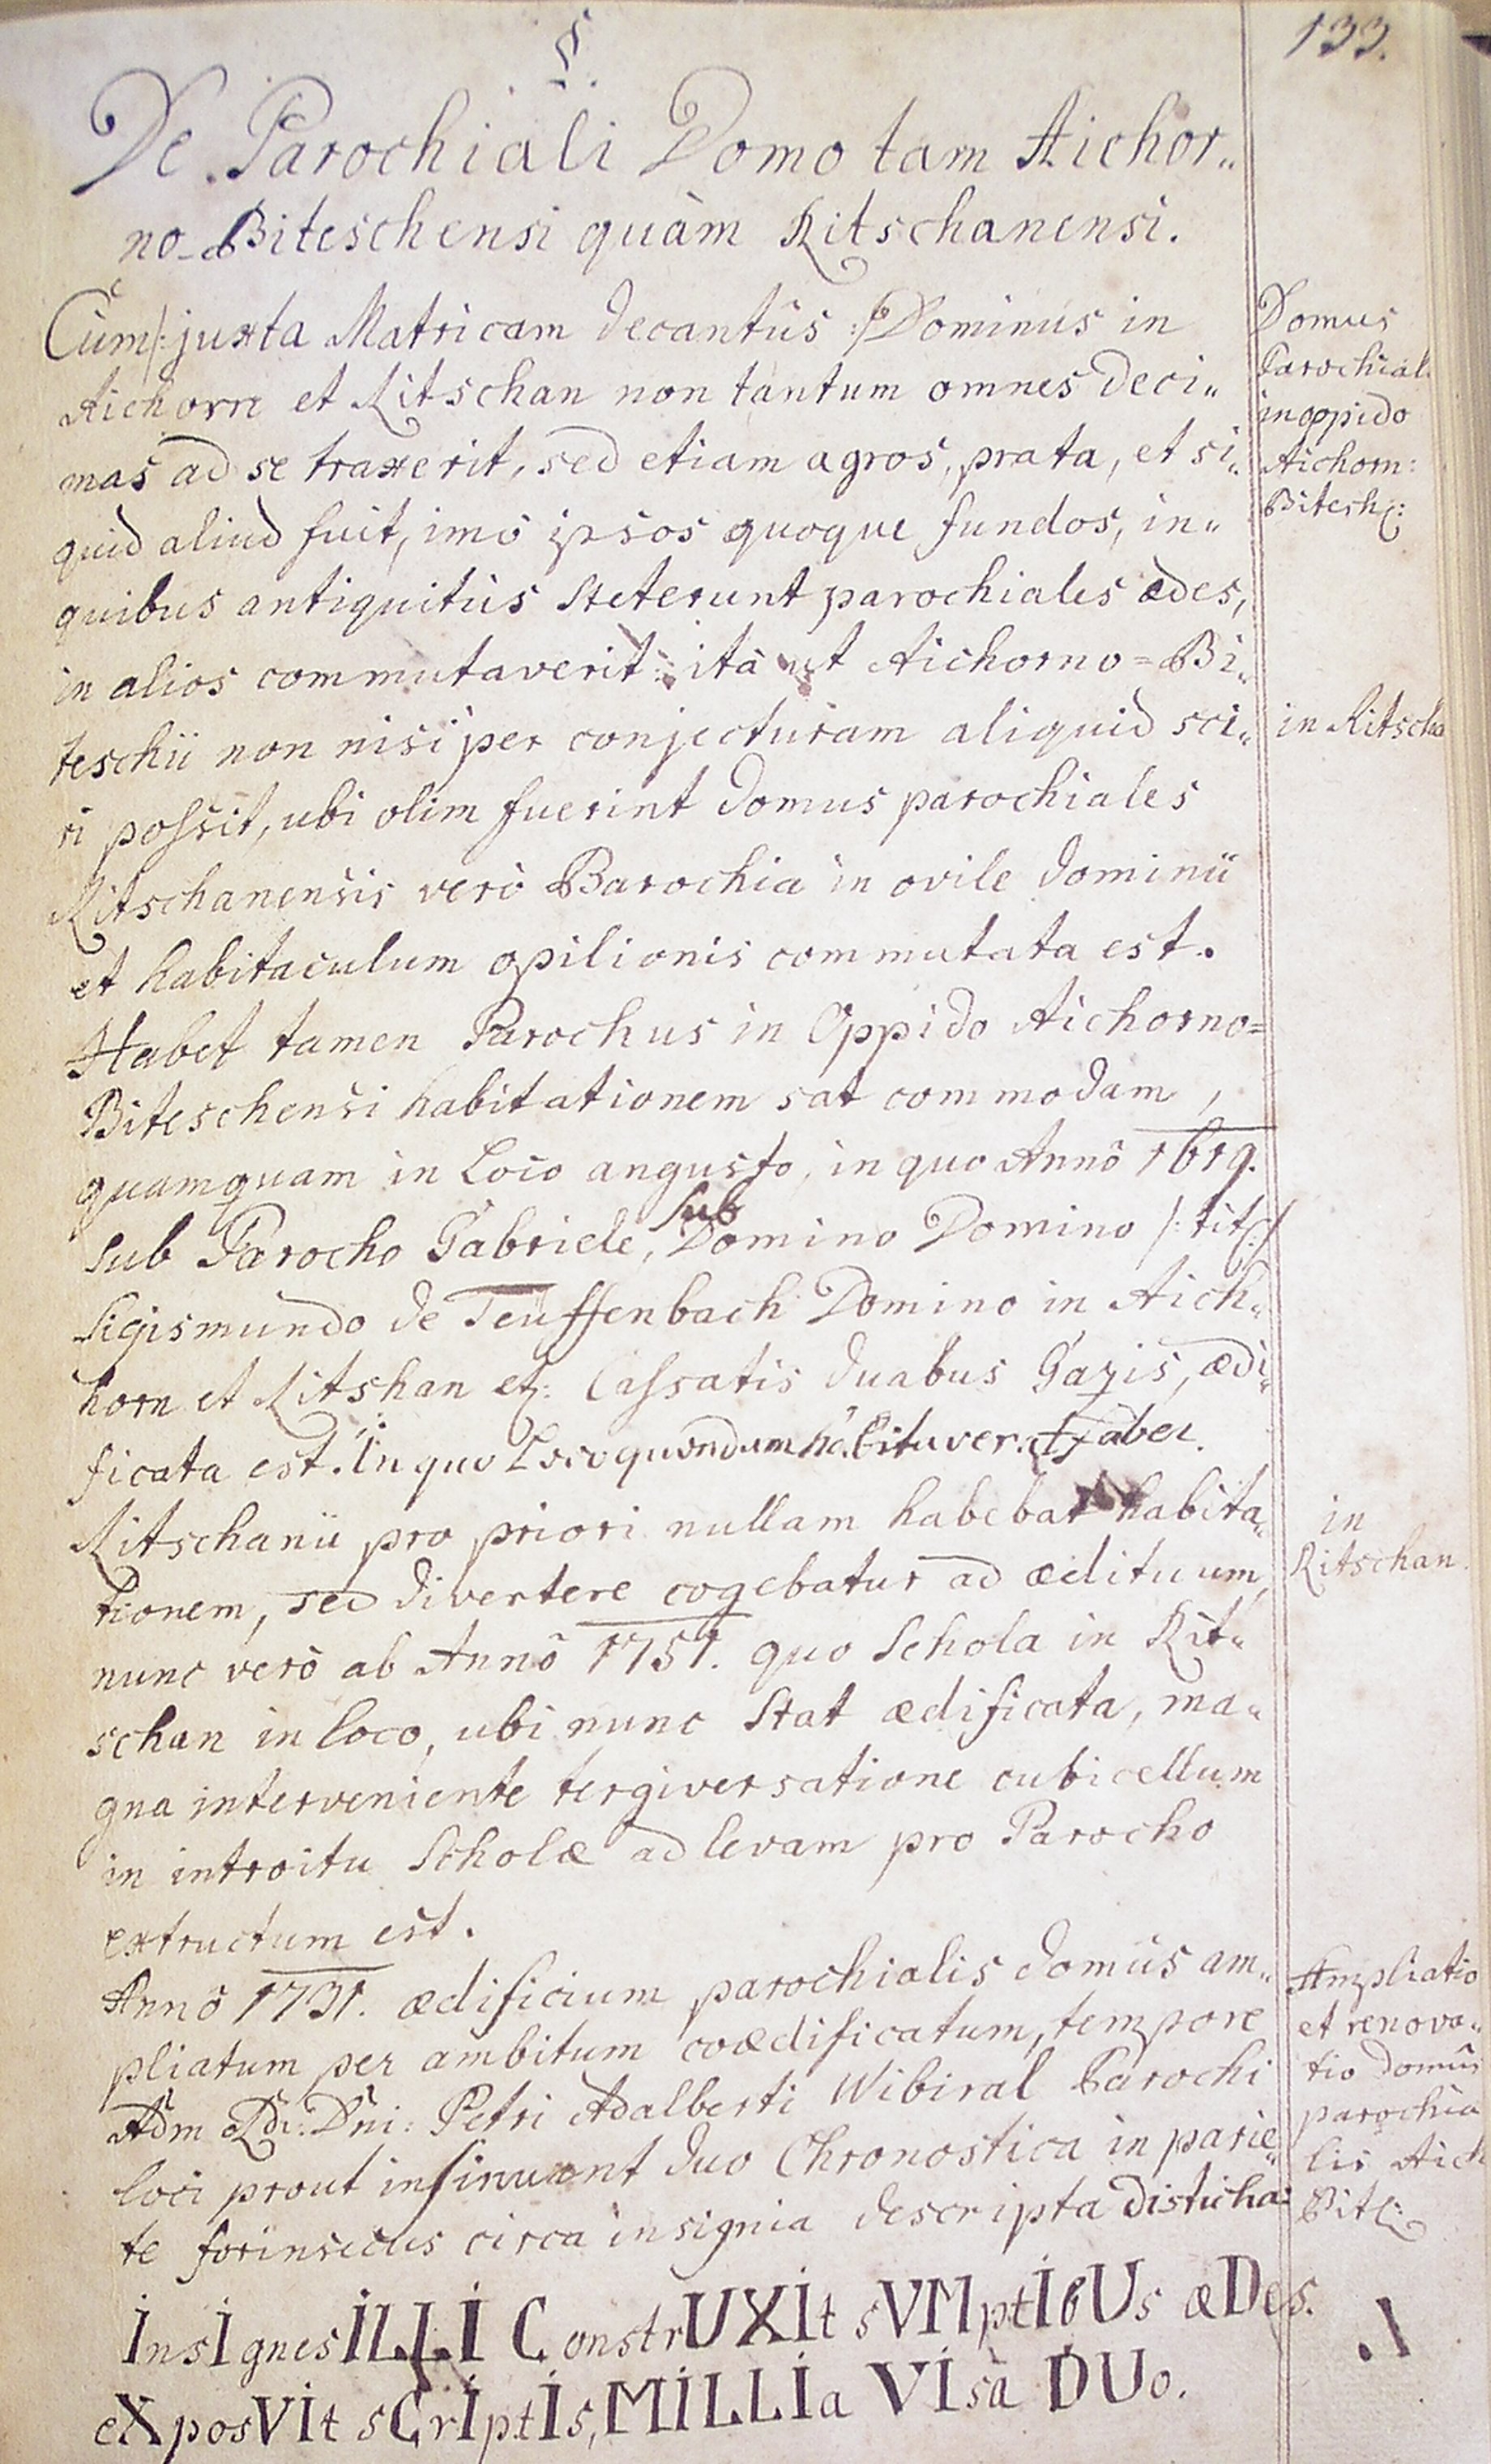 133.
§.
De Parochiali Domo tam Aichor„
no-Biteschensi quàm Ritschanensi.
Cùm /: juxta Matricam decantûs :/ Dominus in
Aichorn et Ritschan non tantum omnes deci„
mas ad se traxerit, sed etiam agros, prata, et si„
quid aliud fuit, imò ipsos quoque fundos, in„
quibus antiquitùs steterunt parochiales ædes,
in alios commutaverit: ità ut Aichorno=Bi„
teschii non nisi per conjecturam aliquid sci„
ri possit, ubi olim fuerint domus parochiales
Ritschanensis verò Barochia in ovile dominii
et habitaculum opilionis commutata est.
Habet tamen Parochus in Oppido Aichorno=
Biteschensi habitationem sat commodam,
quamquam in Loco angusto, in quo Annô 1619.
sub
Sub Parocho Gabriele, Domino Domino /: tit :/
Sigismundo de Teuffenbach Domino in Aich„
horn et Ritshan etc: Cassatis duabus Gazis, ædi„
ficata est. In quo Loco quondam habitaver: et faber.
Ritschanii pro priori nullam habebat habita„
tionem, sed divertere cogebatur ad ædituum,
nunc verò ab Annô 1751. quo Schola in Rit„
schan in loco, ubi nunc stat ædificata, ma„
gna interveniente tergiversatione cubicellum
in introitu Scholæ ad levam pro Parocho
extructum est.
Annô 1731. ædificium parochialis domûs am„
pliatum per ambitum coædificatum, tempore
Adm Rdi: Dni: Petri Adalberti Wibiral Parochi
loci prout insinuant duo Chronostica in parie„
te forinsecus circa insignia descripta disticha:
InsIgnes ILLI ConstrUXIt sVMptIbUs æDes.
eXposVIt sCrIptIs, MILLIa VIsa DUo.
Domus
Parochial:
in oppido
Aichorn:
Bitesch:
in Ritscha
in
Ritschan.
Ampliatio
et renova„
tio domûs
parochia
lis Aich
Bit: